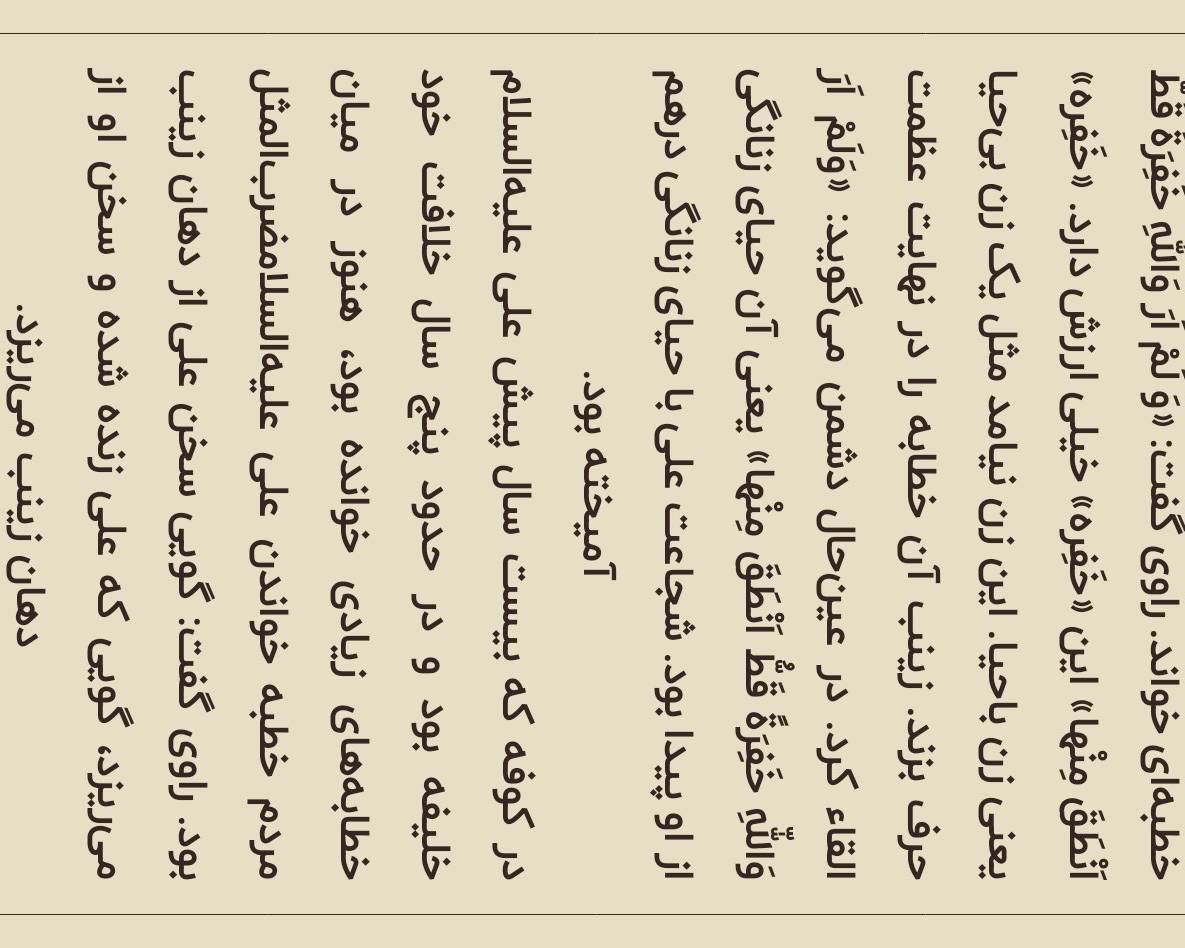 خطبه‌ای خواند. راوی گفت: «وَ لَمْ اَرَ وَاللَّهِ خَفِرَةً قَطُّ
اَنْطَقَ مِنْها» این «خَفِره» خیلی ارزش دارد. «خَفِره»
یعنی زن باحیا. این زن نیامد مثل یک زن بی‌حیا
حرف بزند. زینب آن خطابه را در نهایت عظمت
القاء کرد. در عین‌حال دشمن می‌گوید: «وَلَمْ اَرَ
وَاللَّهِ خَفِرَةً قَطُّ اَنْطَقَ مِنْها» یعنی آن حیای زنانگی
از او پیدا بود. شجاعت علی با حیای زنانگی درهم
آمیخته بود.
در کوفه که بیست سال پیش علی علیه‌السلام
خلیفه بود و در حدود پنج سال خلافت خود
خطابه‌های زیادی خوانده بود، هنوز در میان
مردم خطبه خواندن علی علیه‌السلام‌ضرب‌المثل
بود. راوی گفت: گویی سخن علی از دهان زینب
می‌ریزد، گویی که علی زنده شده و سخن او از
دهان زینب می‌ریزد.